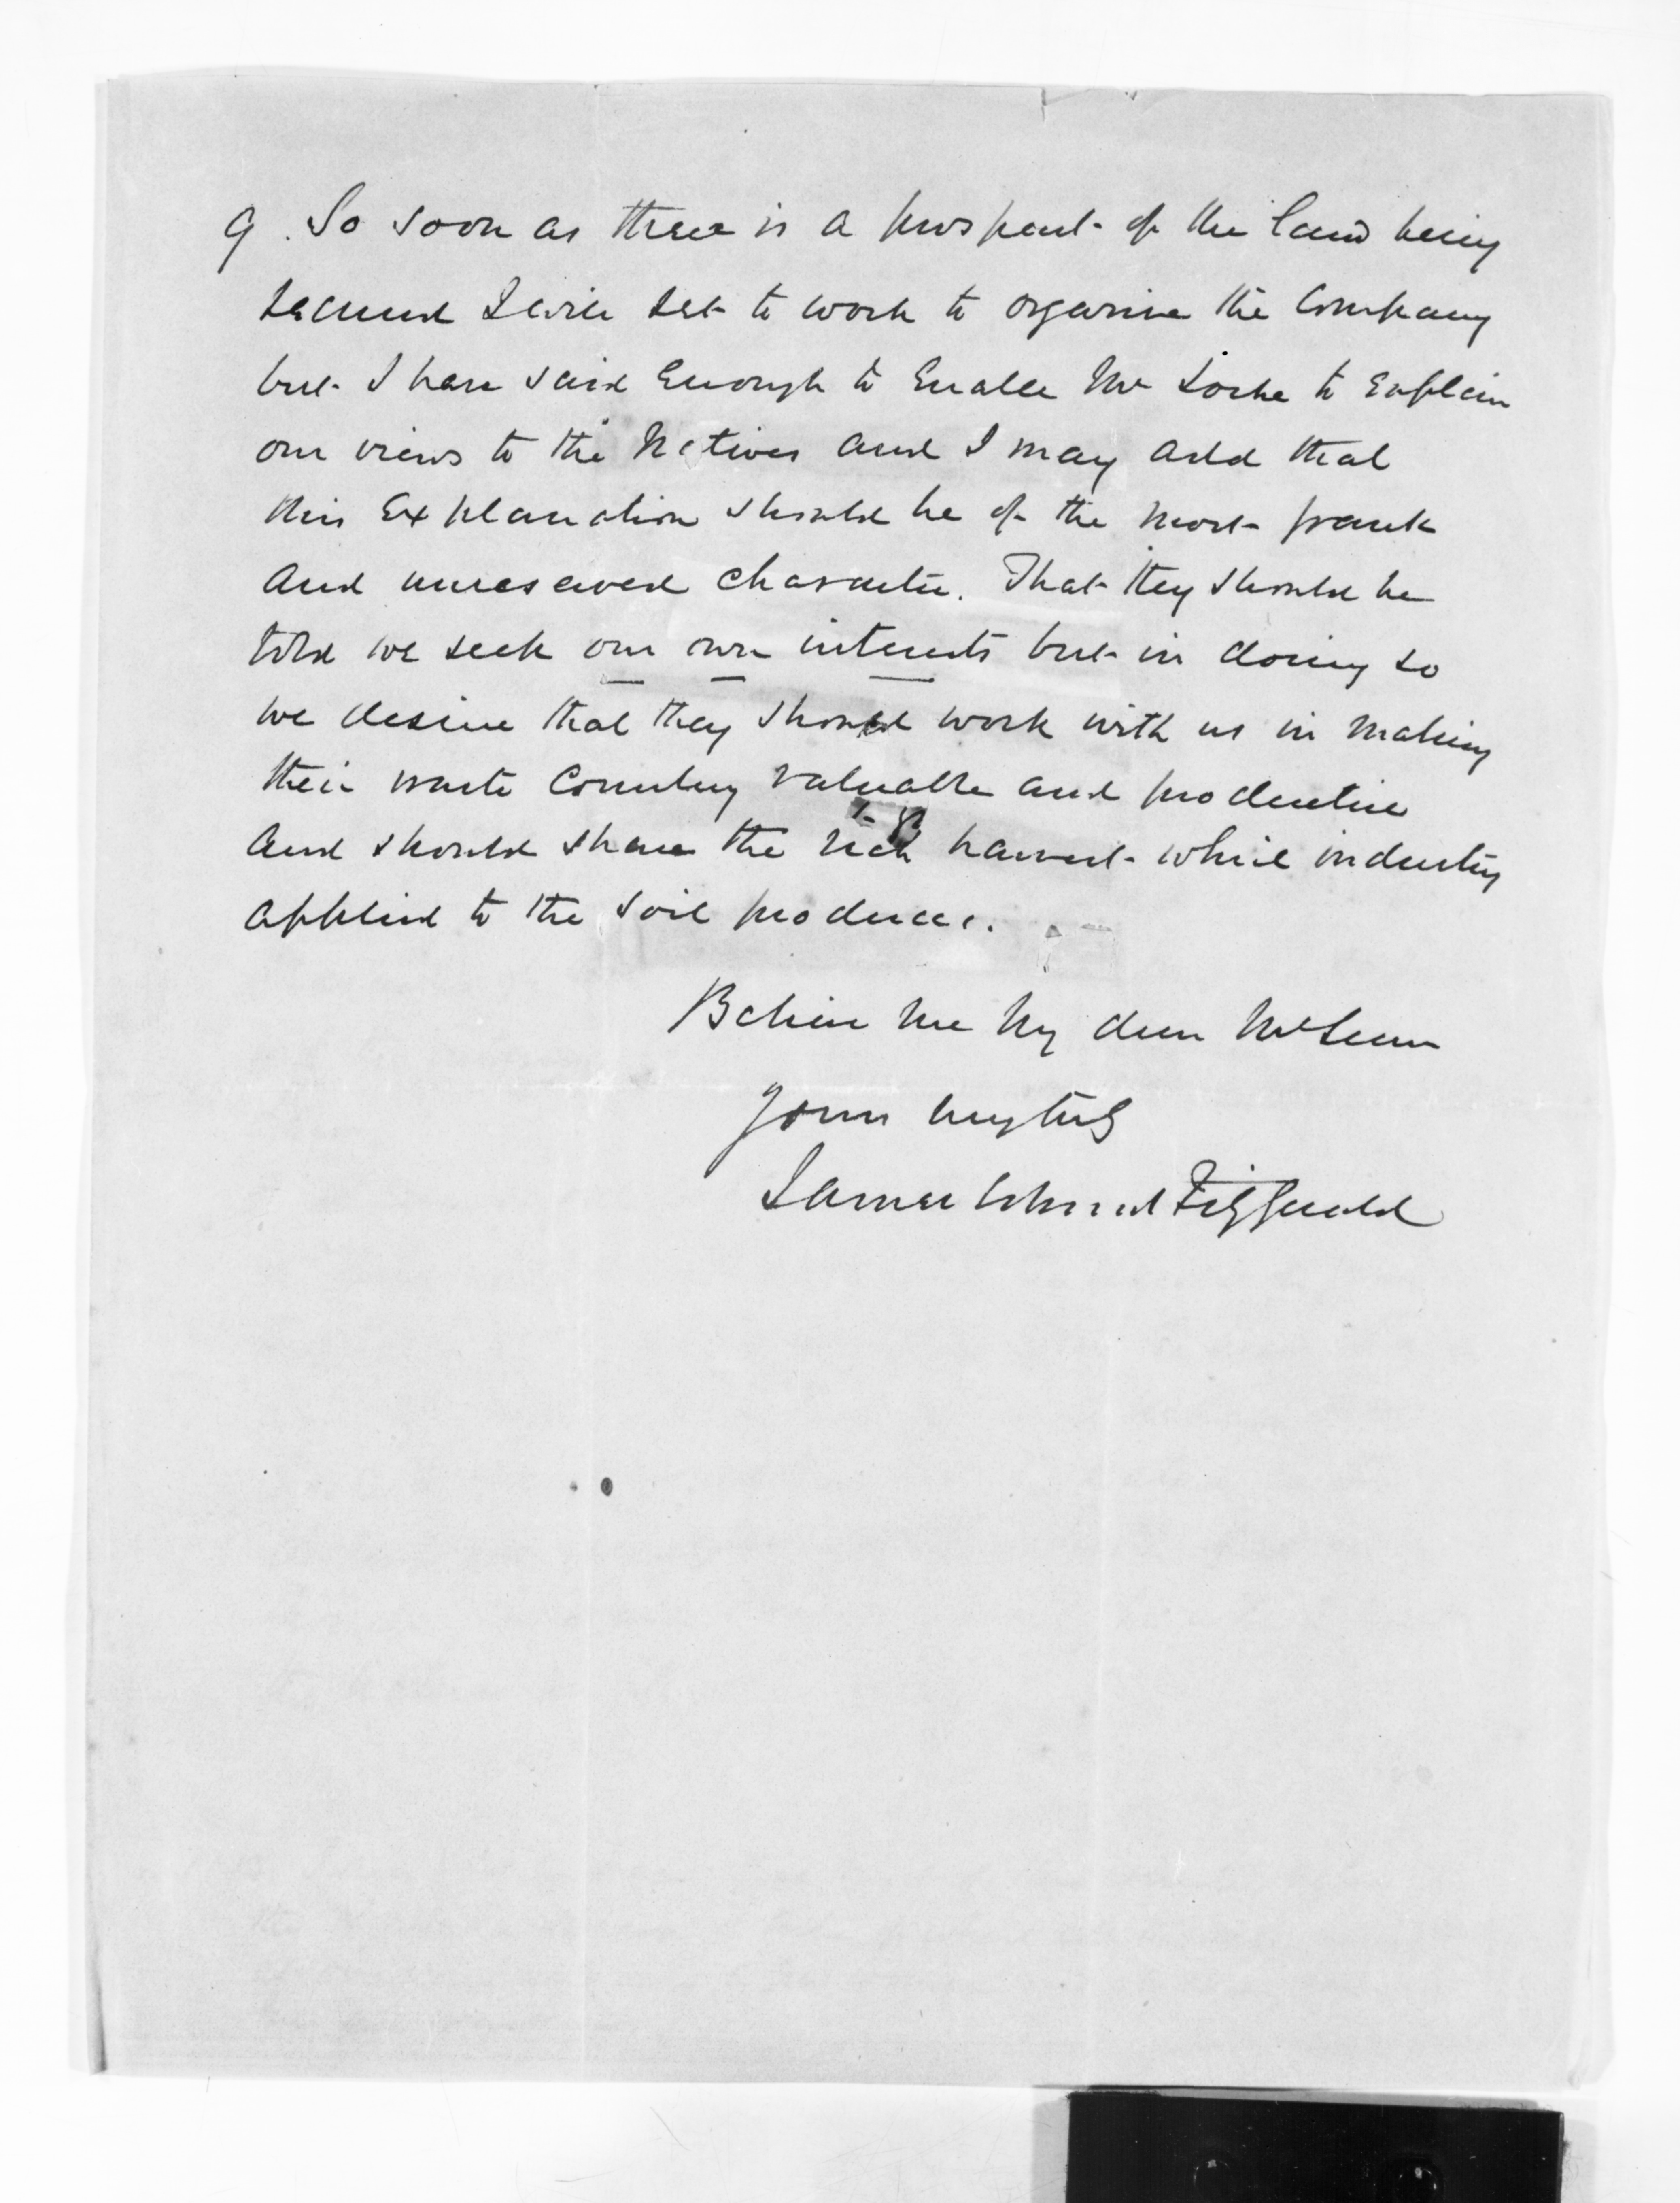 9. So soon as there is a prospect of the land being
secured I will set to work to organise the Company
but I have said enough to enable Mr Locke to explain
our views to the Natives and I may add that
this explanation should be of the most frank
and unreserved character. That they should be
told we seek our own interests but in doing so
we desire that they should work with us in making
their waste Country valuable and productive
and should share the rich harvest which industry
applied to the soil produces.
Believe me My dear McLean
Yours very truly
James Edward FitzGerald